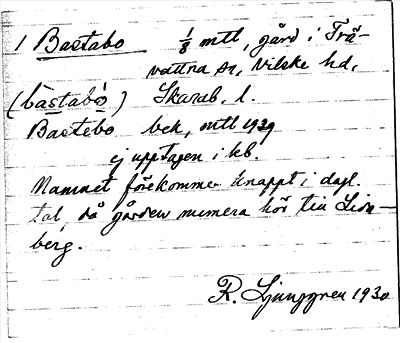 1 Bastabo 1/8 mtl, gård i Trä-
vattna sn, Vilske hd,
(bastabo) Skarab. l.
Bastebo bek, mtl 1939
ej upptagen i kb.
Namnet förekommer knappt i dagl.
tal, då gården numera hör till Lion-
berg.
R. Ljunggren 1930